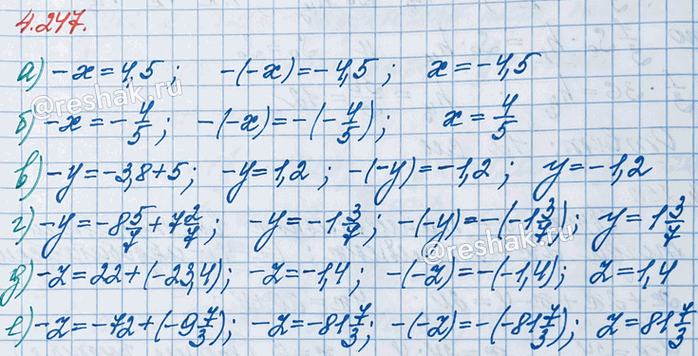 4.247.
а) -x = 4,5; -(-x) = -4,5; x = -4,5
@reshak.ru
б) -x = -4/5; -(-x) = -(-4/5); x = 4/5
в) -y = -3,8 + 5; -y = 1,2; -(-y) = -1,2; y = -1,2
г) -y = -8 5/7 + 7 2/7; -y = -1 3/7; -(-y) = -(-1 3/7); y = 1 3/7
@reshak.ru
д) -z = 22 + (-23,4); -z = -1,4; -(-z) = -(-1,4); z = 1,4
е) -z = -72 + (-9 7/3); -z = -81 7/3; -(-z) = -(-81 7/3); z = 81 7/3